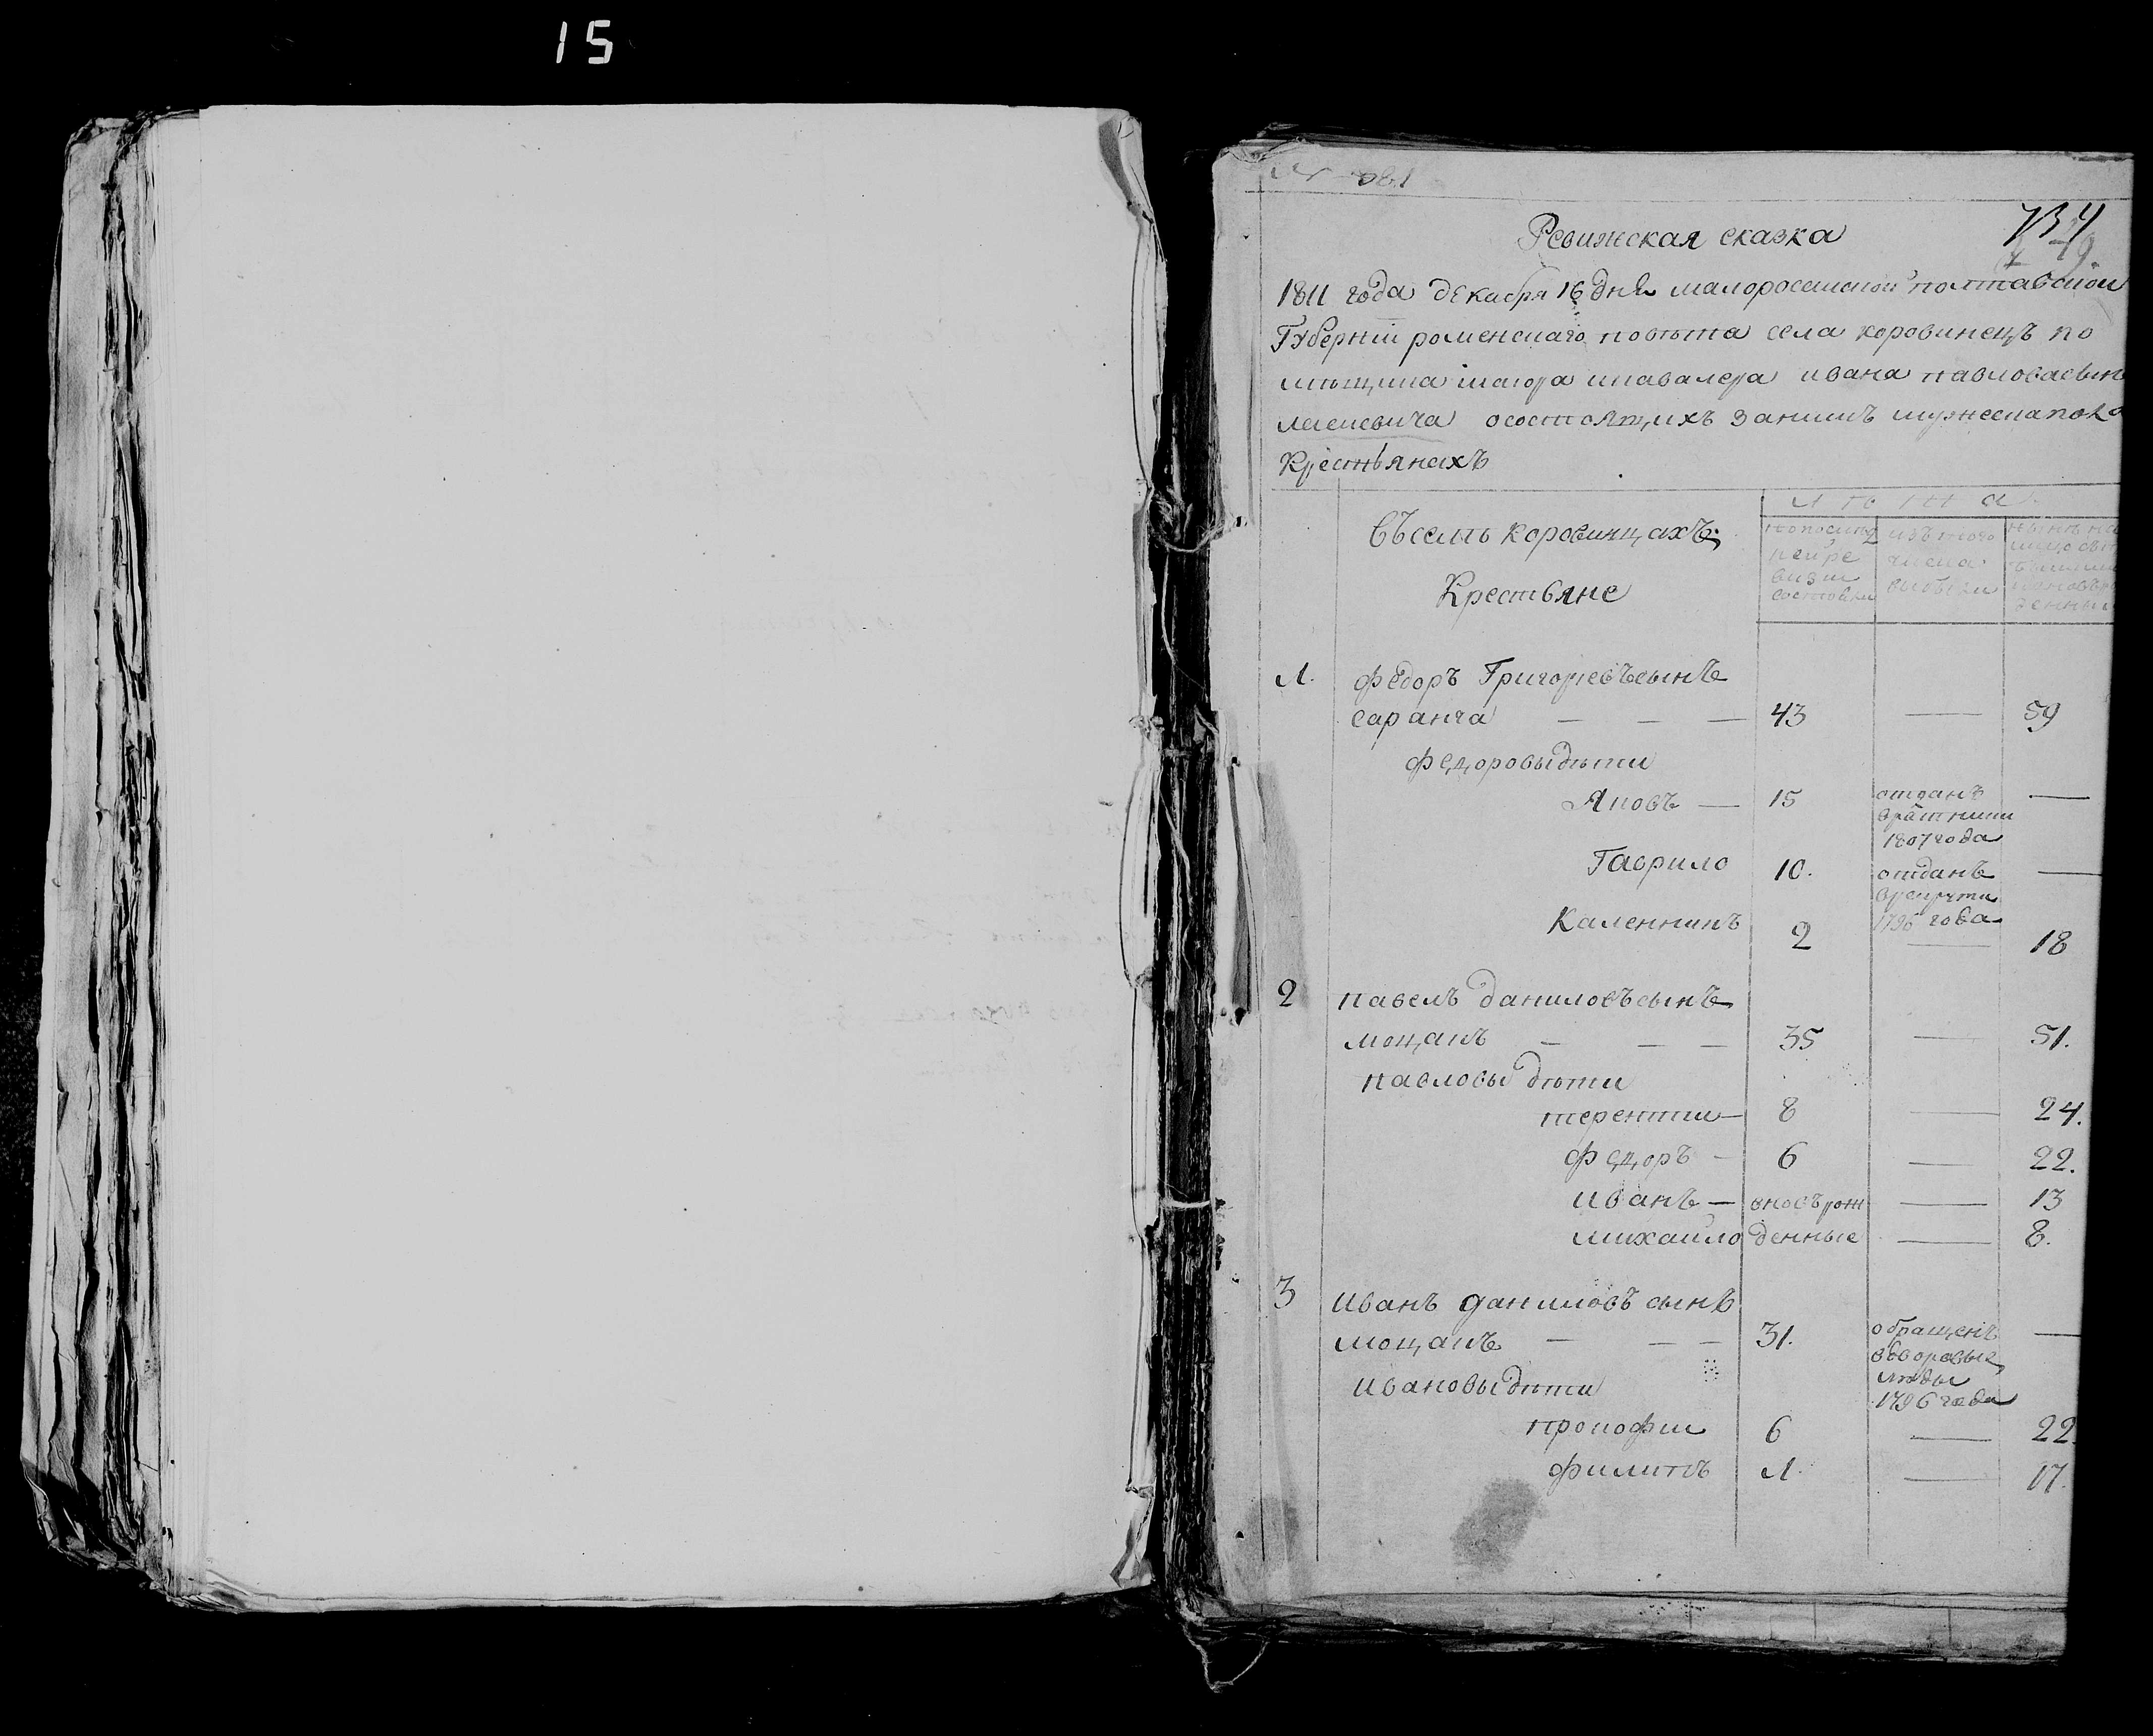 15
734
Ревижская сказка
1811 года декабря 16 дня малоросийской полтавской
Губернiи роменскаго повѣта села коровинецъ по
мѣщика маiора икавалера ивана павловасына
осостоящихъ занимъ мужескапола
Крестьянахъ
лѣта
Въселѣ коровинцахъ
Крестьяне
попослед
ней ре
визiи
состояло
изътого
числа
выбыли
1. федоръ Григорiевъсынъ
саранча — — — 43 — 59
федоровыдѣти
Яковъ — 15 отданъ —
вратники
1807 года
Гаврило 10. отданъ —
врекруты
1796 года
Каленникъ 2 — 18
2 павелъ даниловъсынъ
моцакъ — — — 35 — 51.
павловы дѣти
терентiи — 8 — 24.
федоръ — 6 — 22.
иванъ — вновърож — 13
михаило денные — 8.
3 иванъ даниловъ сынъ
моцакъ — — — 31. обращенъ —
вдворовые
люды
1796 года
ивановыдѣти
прокофiи 6 — 22.
филипъ 1. — 17.